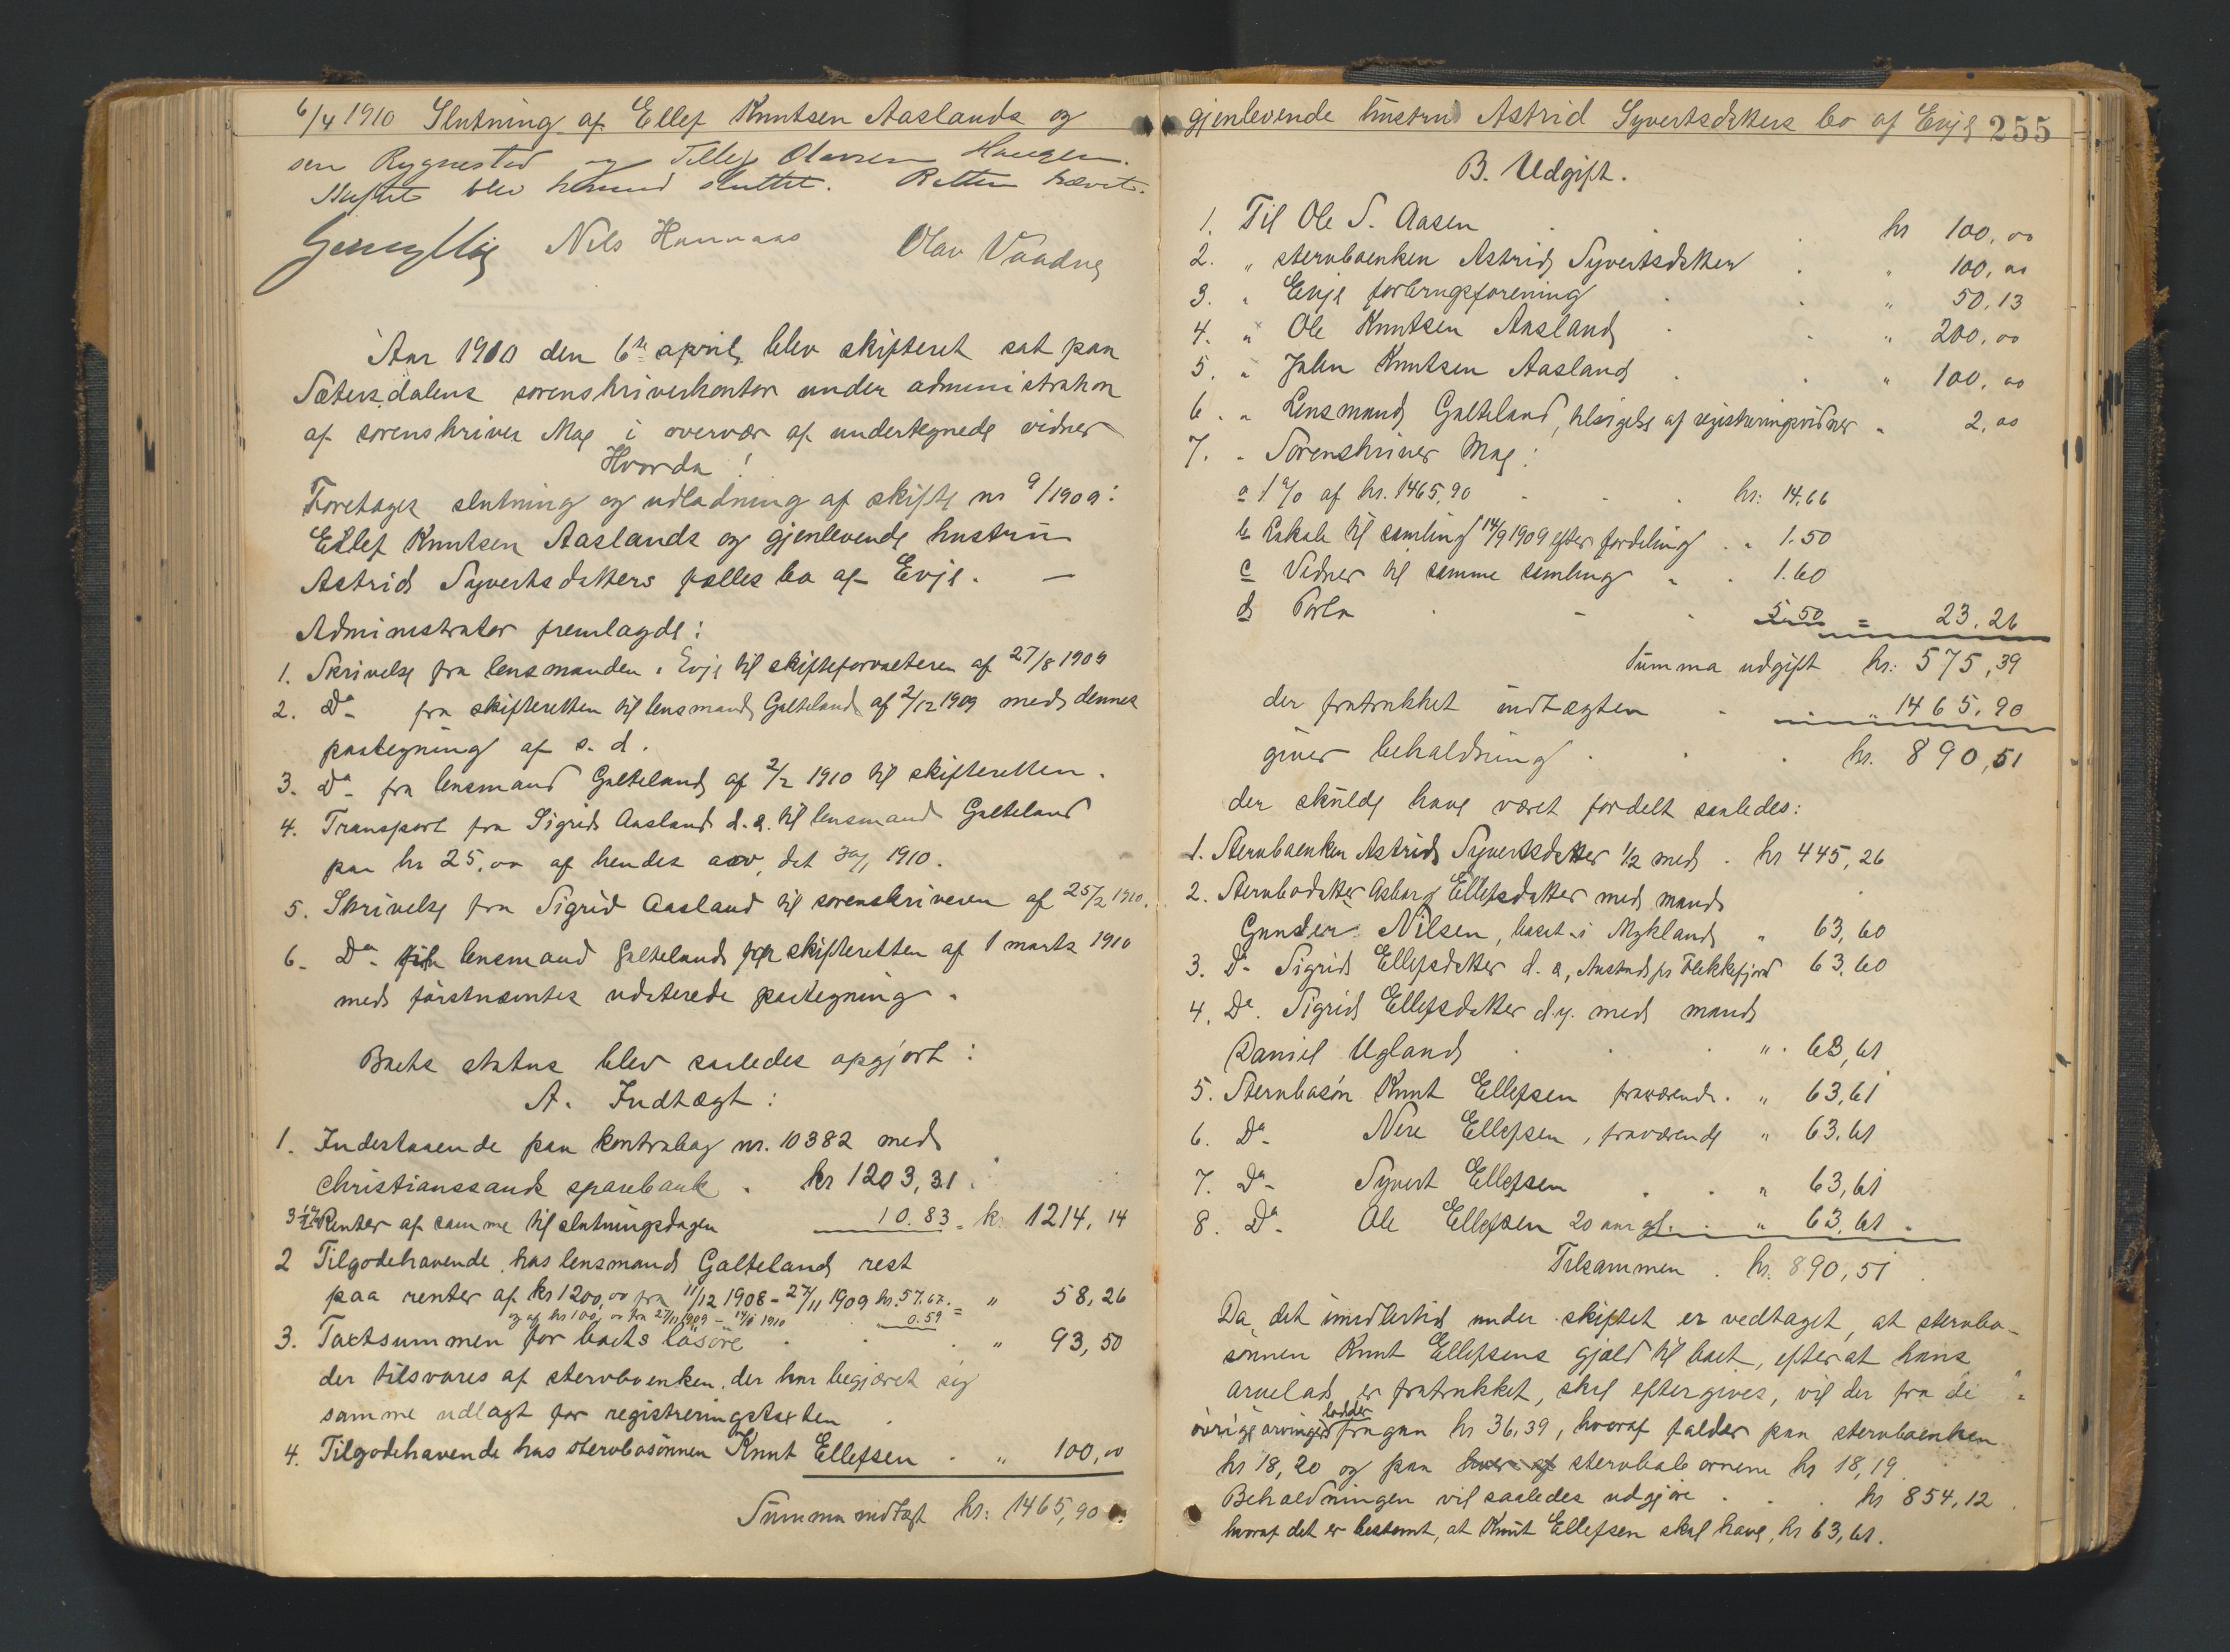 6/4 1910 Slutning af Ellef Knutsen Aaslands og
sen Rygnestad og Tellef Olavsen Haugen.
Skiftet blev hermed sluttet. Retten hævet.
Nils Hannaas Olav Vaadne
Aar 1910 den 6te april blev skifteret sat paa
Sætersdalens sorenskriverkontor under administration
af sorenskriver Mæ i overvær af undertegnede vidner
Hvorda!
Foretages slutning og udlodning af skifte nr 9/1909:
Ellef Knutsen Aaslands og gjenlevende hustru
Astrid Syvertsdatters fælles bo af Evje. —
Administrator fremlagde:
1. Skrivelse fra lensmanden i Evje til skifteforvalteren af 27/8 1909
2. Do- fra skifteretten til lensmand Galteland af 2/12 1909 med dennes
paategning af s. d.
3. Do- fra lensmand Galteland af 2/2 1910 til skifteretten.
4. Transport fra Sigrid Aasland d. æ. til lensmand Galteland
paa kr 25,00 af hendes arv, dat 30/1 1910.
5. Skrivelse fra Sigrid Aasland til sorenskriveren af 25/2 1910.
6. Do- lensmand Galteland skifteretten af 1 marts 1910
med førstnævntes udaterede paategning.
Boets status blev saaledes opgjort:
A. Indtægt:
1. Indestaaende paa kontrabog nr. 10382 med
Christianssands sparebank . kr 1203,31
Renter af samme til slutningsdagen 10.83 = kr 1214,14
2 Tilgodehavende hos lensmand Galteland rest
paa renter af kr 1200,00 fra 11/12 1908 - 27/11 1909 kr. 57.67. = " 58,26
og af kr 100,00 fra 27/11 1909 - 14/1 1910 " 0.59
3. Taxtsummen for boets løsøre . . " 93,50
der tilsvares af stervboenken, der har begjæret sig
samme udlagt for registreringstaxten
4. Tilgodehavende hos stervbosønnen Knut Ellefsen . " 100,00
Summa indtægt kr: 1465,90
gjenlevende hustru Astrid Syvertsdatters bo af Evje 255
B. Udgift.
1. Til Ole S. Aasen . . kr 100,00
2. " stervboenken Astrid Syvertsdatter . " 100,00
3. " Evje forbrugsforening . . " 50,13
4. " Ole Knutsen Aasland . . " 200,00
5. " Jahn Knutsen Aasland . . " 100,00
6. " Lensmand Galteland, tilsigelse af registreringsvidner " 2,00
7. " Sorenskriver Mæ:
a 1 % af kr. 1465,90 . . kr: 14.66
b Lokale til samling 14/9 1909 efter fordeling . " 1.50
c Vidner til samme samling " . 1.60
d Porto . - . 5.50 = 23.26
Summa udgift kr: 575,39
der fratrukket indtægten . . " 1465.90
giver beholdning . . . kr. 890,51
der skulde have været fordelt saaledes:
1. Stervboenken Astrid Syvertsdatter 1/2 med . kr 445,26
2. Stervbodatter Asborg Ellefsdatter med mand
Gunder Nilsen, bosat i Mykland " 63,60
3. Do- Sigrid Ellefsdatter d. æ, Austad pr Flekkefjord 63,60
4. Do. Sigrid Ellefsdatter d.y. med mand
Daniel Ugland . . . " . 63,61
5. Stervbosøn Knut Ellefsen fraværende . " 63,61
6. Do- Nere Ellefsen, fraværende " 63,61
7. Do- Syvert Ellefsen . . " 63,61
8. Do- Ole Ellefsen 20 aar gl. . " 63,61.
Tilsammen . kr. 890,51.
Da det imidlertid under skiftet er vedtaget, at stervbo-
sønnen Knut Ellefsens gjæld til boet, efter at hans
arvelod er fratrukket, skal eftergives, vil der fra de
øvrige arvingers lodder fragaa kr 36,39, hvoraf falder paa stervboenken
kr 18,20 og paa stervbobørnene kr 18,19.
Beholdningen vil saaledes udgjøre . . . kr 854,12.
hvoraf det er bestemt, at Knut Ellefsen skal have, kr 63,61.